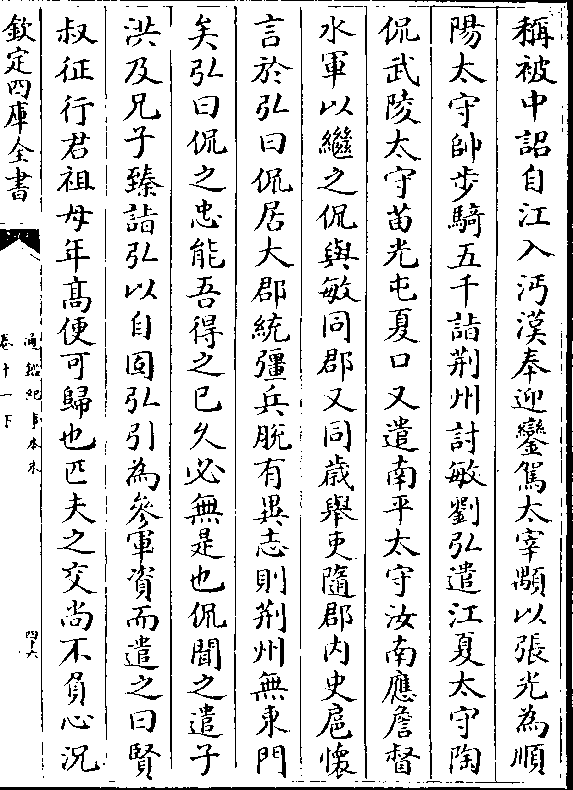 稱被中詔自江入沔漢奉迎鑾駕太宰顒以張光為順
陽太守帥步騎五千詣荆州討敏劉弘遣江夏太守陶
侃武陵太守苗光屯夏口又遣南平太守汝南應詹督
水軍以繼之侃與敏同郡又同歳舉吏隨郡内史扈懷
言於弘曰侃居大郡統彊兵脱有異志則荆州無東門
矣弘曰侃之忠能吾得之已久必無是也侃聞之遣子
洪及兄子臻詣弘以自固弘引為參軍資而遣之曰賢
叔征行君祖母年髙便可歸也匹夫之交尚不負心況
欽定四庫全書
通鑑紀事本末
卷十一下
四六